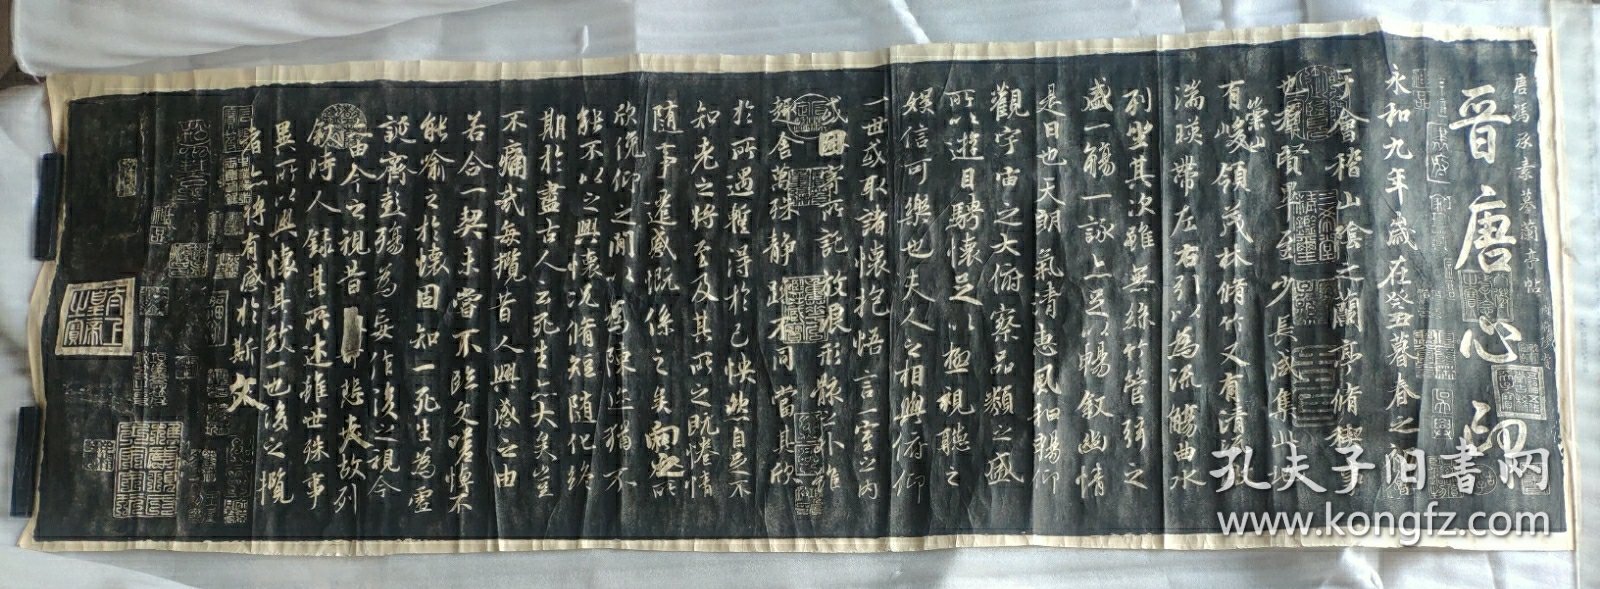 晋唐心印
唐馮承素摹蘭亭帖
永和九年歲在癸丑暮春之初會
于會稽山陰之蘭亭脩稧
也羣賢畢至少長咸集此地
有崇山峻領茂林脩竹又有清流激
湍暎帶左右引以為流觴曲水
列坐其次雖無絲竹管弦之
盛一觴一詠上足以暢叙幽情
是日也天朗氣清惠風和暢仰
觀宇宙之大俯察品類之盛
所以遊目騁懷足以極視聽之
娛信可樂也夫人之相與俯仰
一世或取諸懷抱悟言一室之内
或因寄所託放浪形骸之外雖
趣舍萬殊静躁不同當其欣
於所遇暫得於己怏然自足不
知老之將至及其所之既惓情
隨事遷感慨係之矣向之所
欣俛仰之閒以為陳迹猶不
能不以之興懷況脩短隨化終
期於盡古人云死生亦大矣豈
不痛哉每攬昔人興感之由
若合一契未嘗不臨文嗟悼不
能喻之於懷固知一死生為虛
誕齊彭殤為妄作後之視今
亦由今之視昔悲夫故列
叙時人錄其所述雖世殊事
異所以興懷其致一也後之攬
者亦將有感於斯文
太上皇帝之寶
孔夫子旧書网
www.kongfz.com